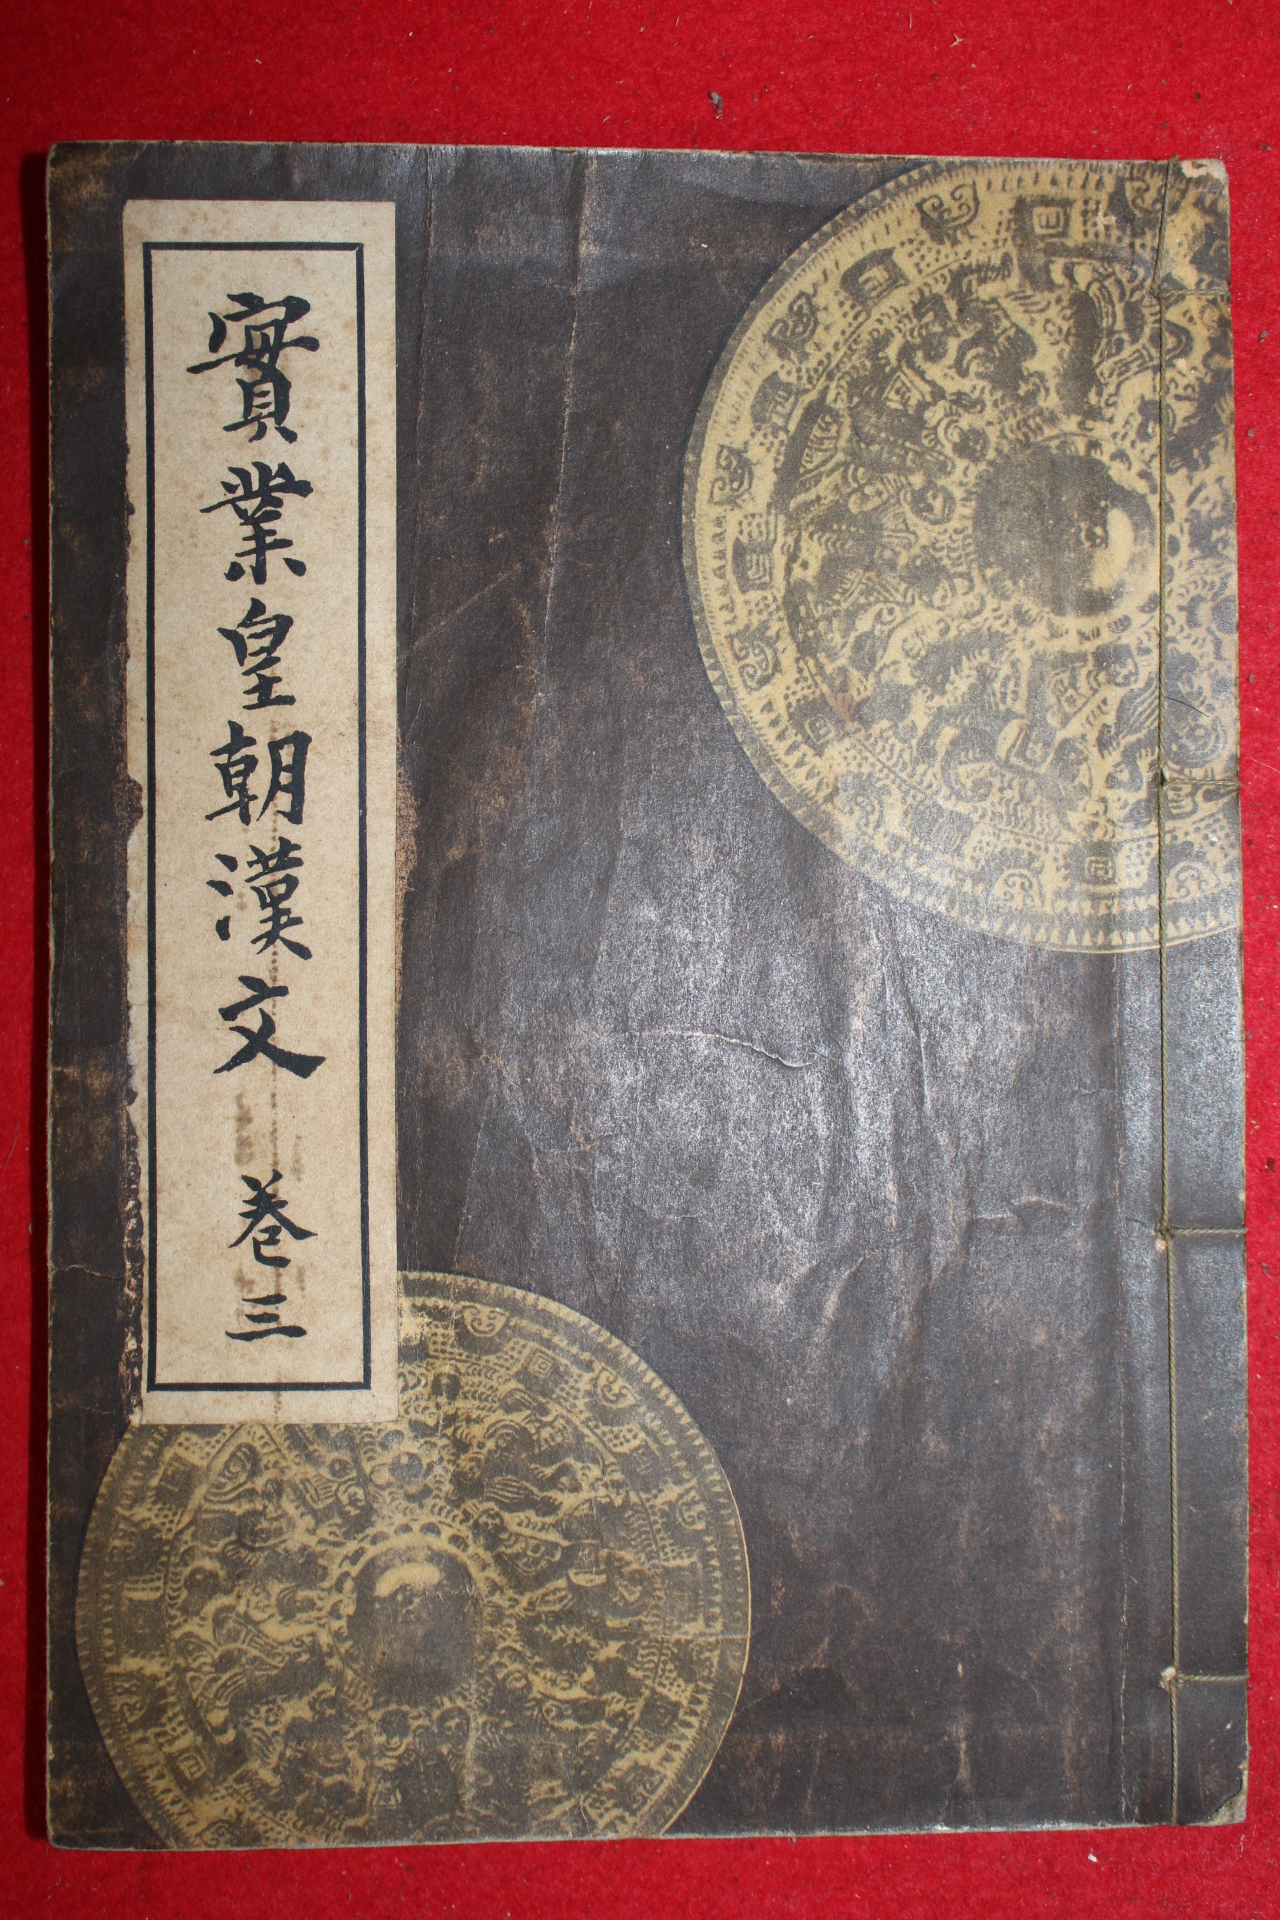 實業皇朝漢文 卷三